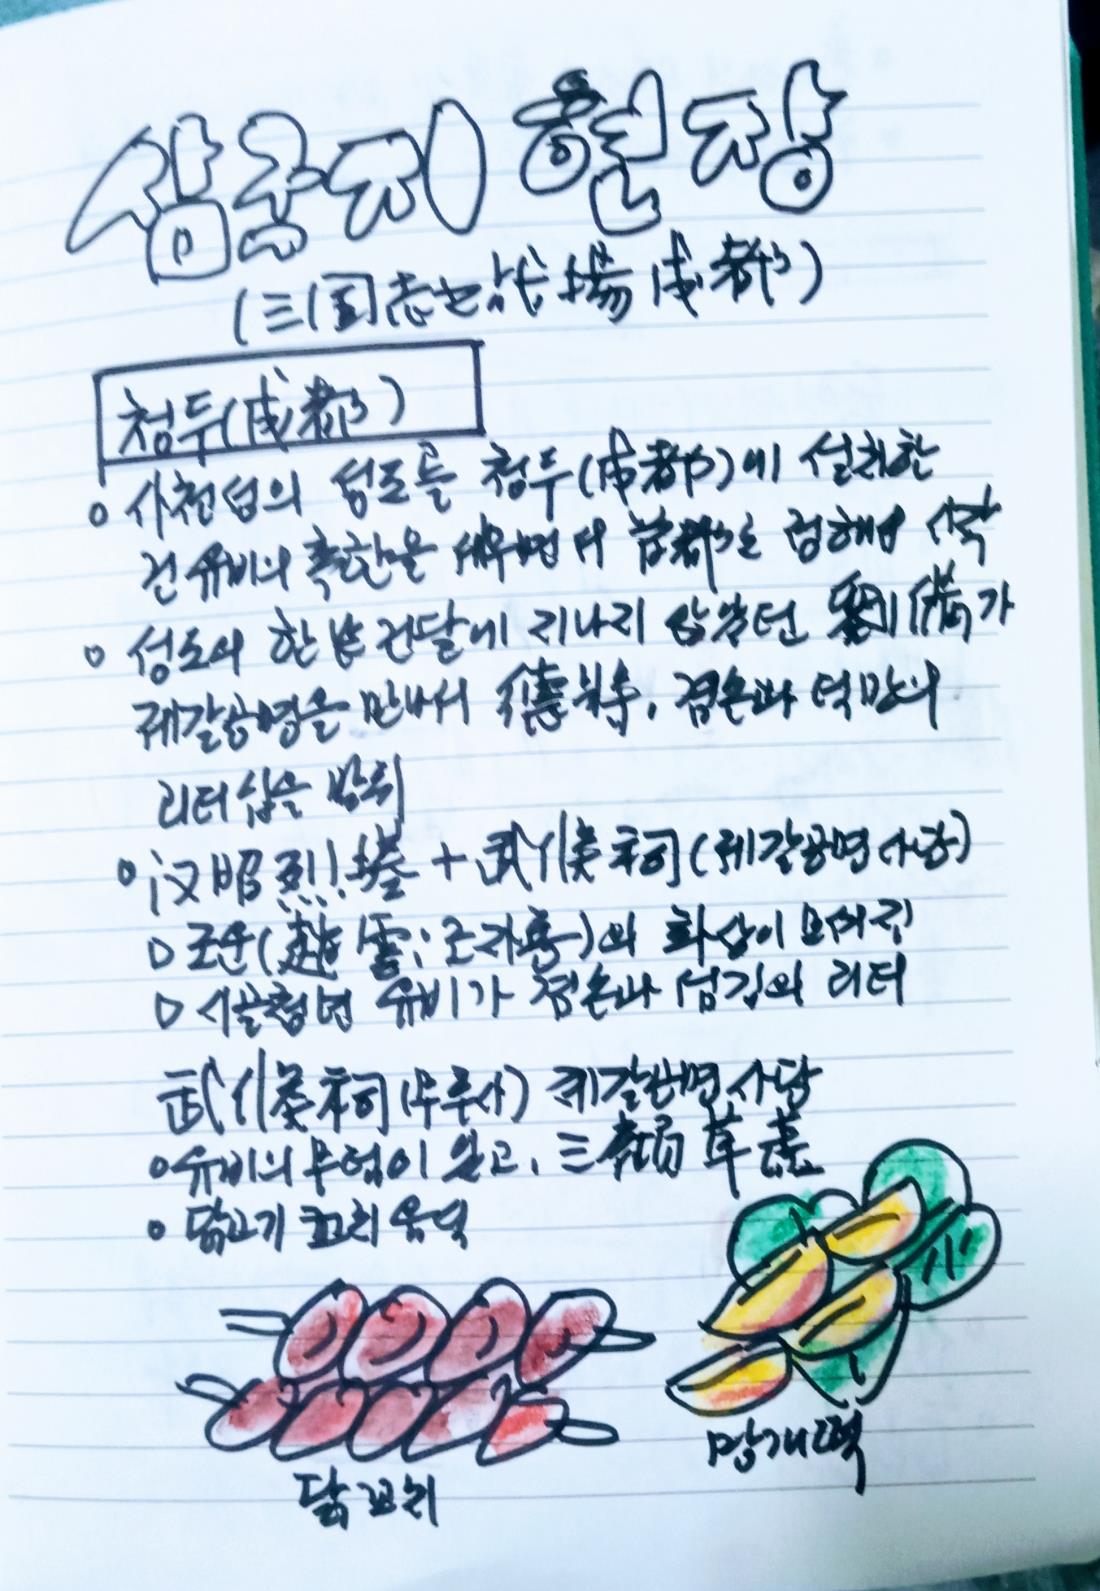 삼국지 현장
(三国志之 場 成都)
청두(成都)
사천성의 성도를 청두(成都)에 설치한
건 유비의 촉한을 세우면서 首都로 정해서 시작
성도의 한낱 건달에 지나지 않았던 劉備가
제갈공명을 만나서 겸손과 덕망의
리더십을 발휘
汉昭烈 + 武侯祠(제갈공명사당)
조운(趙雲: 조자룡)의 화상이 모셔짐
시골청년 유비가 겸손과 섬김의 리더
武侯祠(무후사) 제갈공명사당
유비의 무덤이 있고, 三顧草廬
닭고기 꼬치 음식
닭꼬치
망개떡